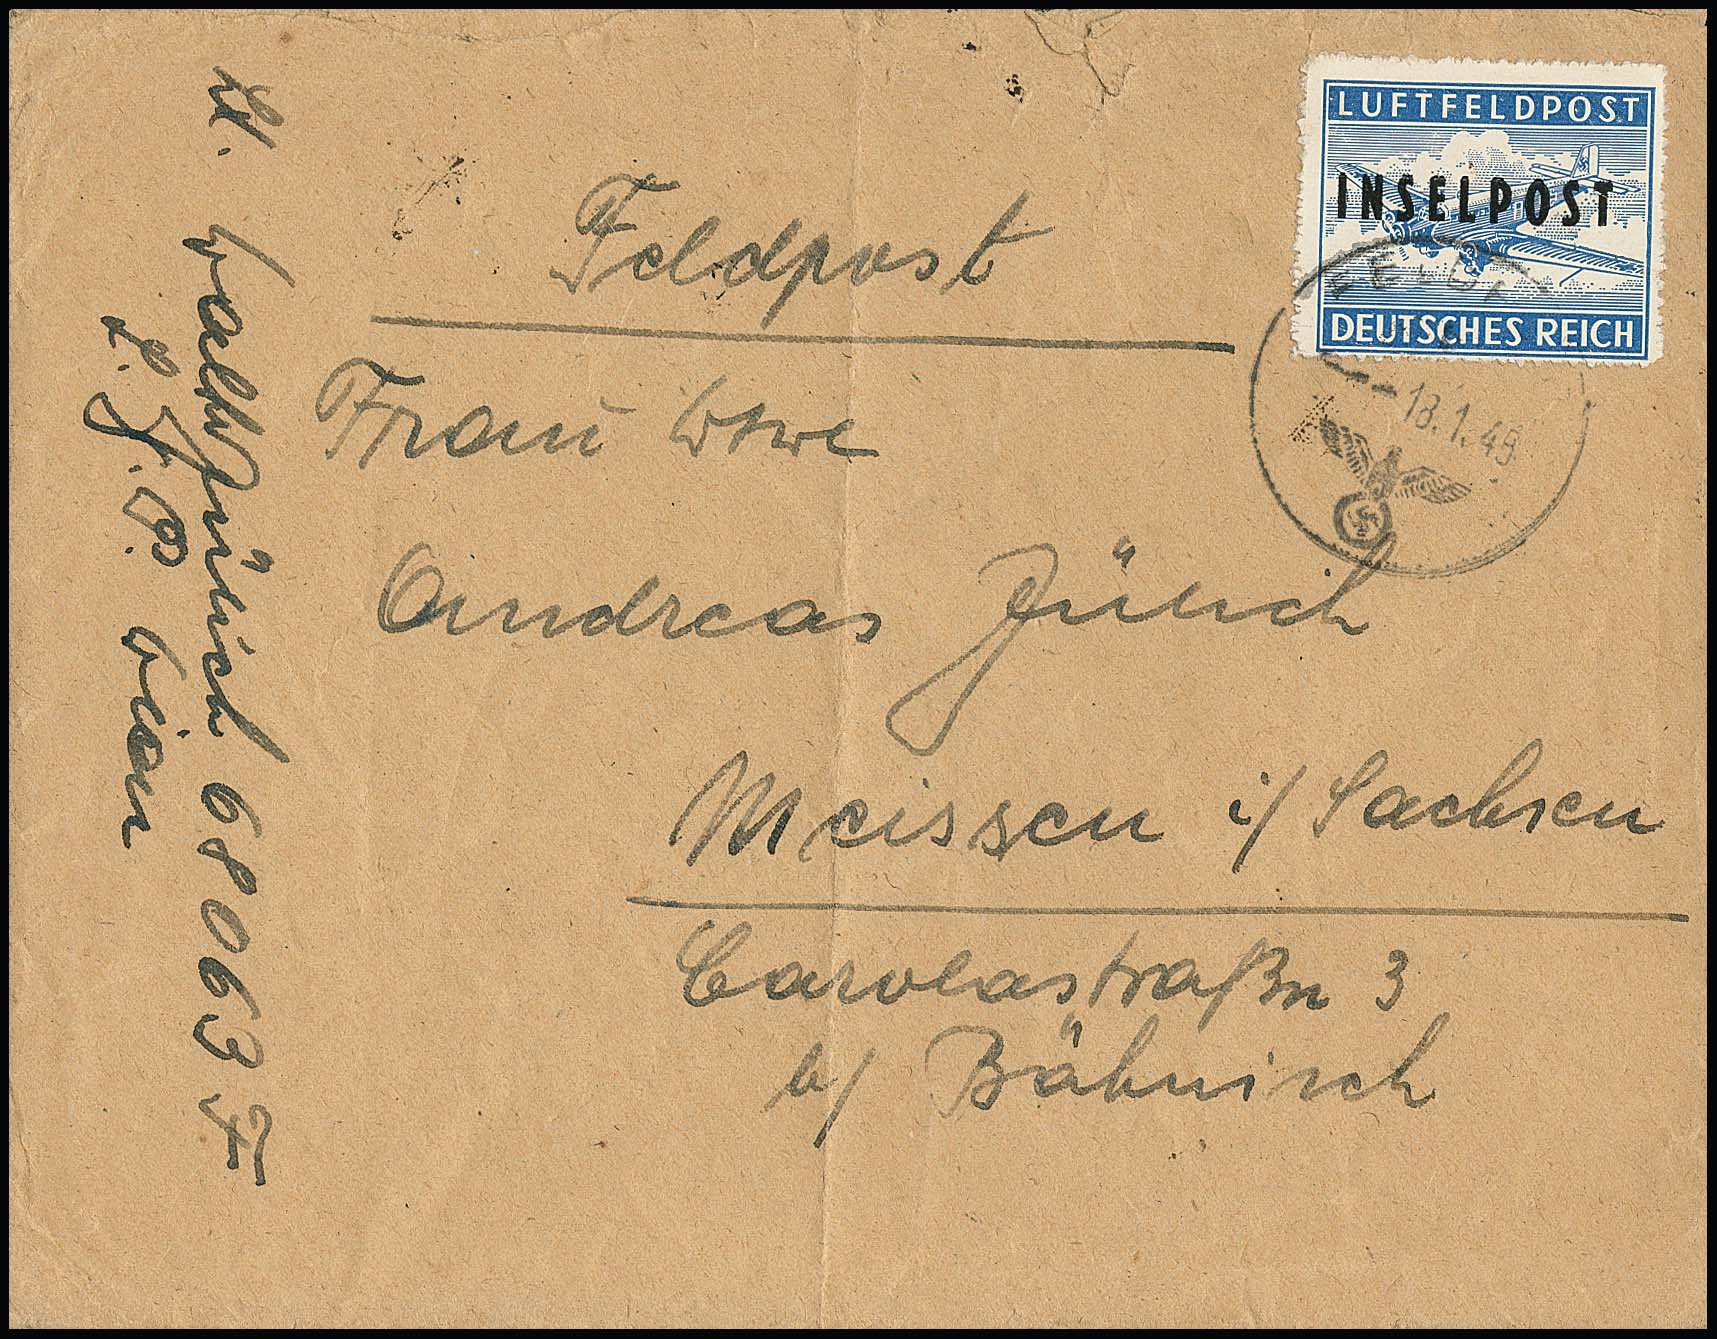 LUFTFELDPOST
INSELPOST
DEUTSCHES REICH
FELDP
18.1.45
Feldpost
Frau Wwe
Andreas Jülich
Meissen i/Sachsen
Carolastraße 3
b/ Bähnisch
Lt. Jülich 68063 F
L.G.P. Wien